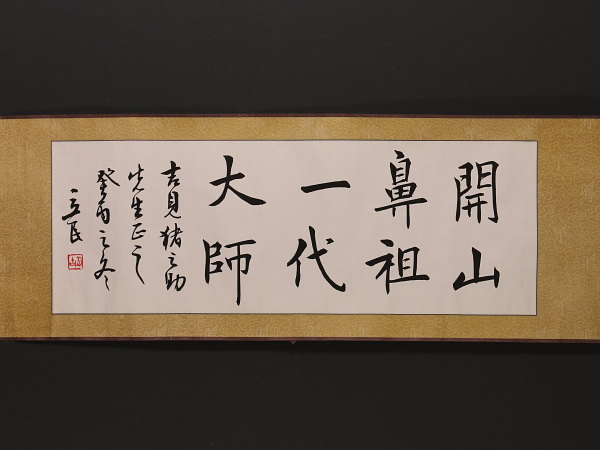 開山
鼻祖
一代
大師
吉見猪之助
先生正之
之冬
立民